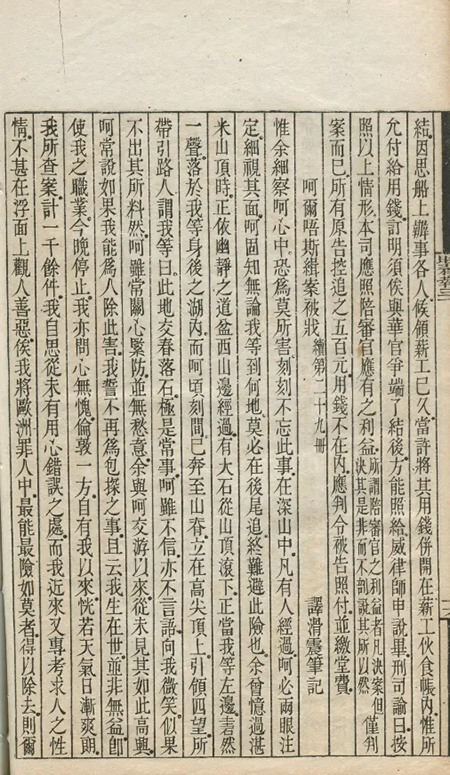 結因思船上辦事各人候領薪工已久當許將其用錢併開在薪工伙食帳內惟所
允付給用錢訂明須俟與華官爭端了結後方能照給威律師申說畢刑司諭曰按
照以上情形本司應照陪審官應有之利益所謂陪審官之利益者凡決案但決其是非而不剖說其所以然僅判
案而已所有原告控追之五百元用錢不在內應判令被告照付並繳堂費
呵爾唔斯緝案被戕 續第二十九冊 譯滑震筆記
惟余細察呵心中恐為莫所害刻刻不忘此事在深山中凡有人經過呵必兩眼注
定細視其面呵固知無論我等到何地莫必在後尾追終難避此險也余曾憶過湛
米山頂時正依幽靜之道盆西山邊經過有大石從山頂滾下正當我等左邊砉然
一聲落於我等身後之湖內而呵頃刻間已奔至山脊立在高尖頂上引領四望所
帶引路人謂我等曰此地交春落石極是常事呵雖不信亦不言語向我微笑似果
不出其所料然呵雖常關心緊防並無愁意余與呵交游以來從未見其如此高興
呵常說如果我能為人除此害我誓不再為包探之事且云我生在世並非無益即
使我之職業今晚停止我亦問心無愧倫敦一方自有我以來恍若天氣日漸爽朗
我所查案計一千餘件我自思從未有用心錯誤之處而我近來又專考求人之性
情不甚在浮面上觀人善惡俟我將歐洲罪人中最能最險如莫者得以除去則爾